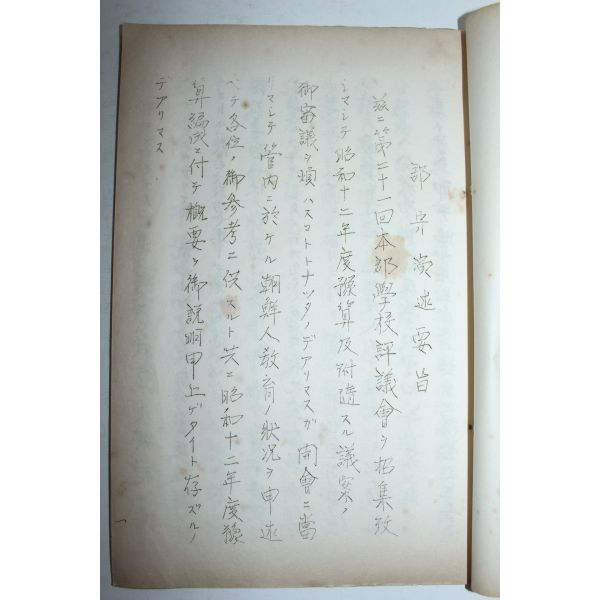 郡守演述要旨
玆ニ第二十一回本郡學校評議會ヲ招集致
シマシテ昭和十二年度豫算及附隨スル議案ノ
御審議ヲ煩ハスコトトナツタノデアリマスガ開會ニ當
リマシテ管内ニ於ケル朝鮮人教育ノ狀況ヲ申述
ベテ各位ノ御參考ニ供スルト共ニ昭和十二年度豫
算編成ニ付テ概要ヲ御說明申上ゲタイト存ズルノ
デアリマス
一